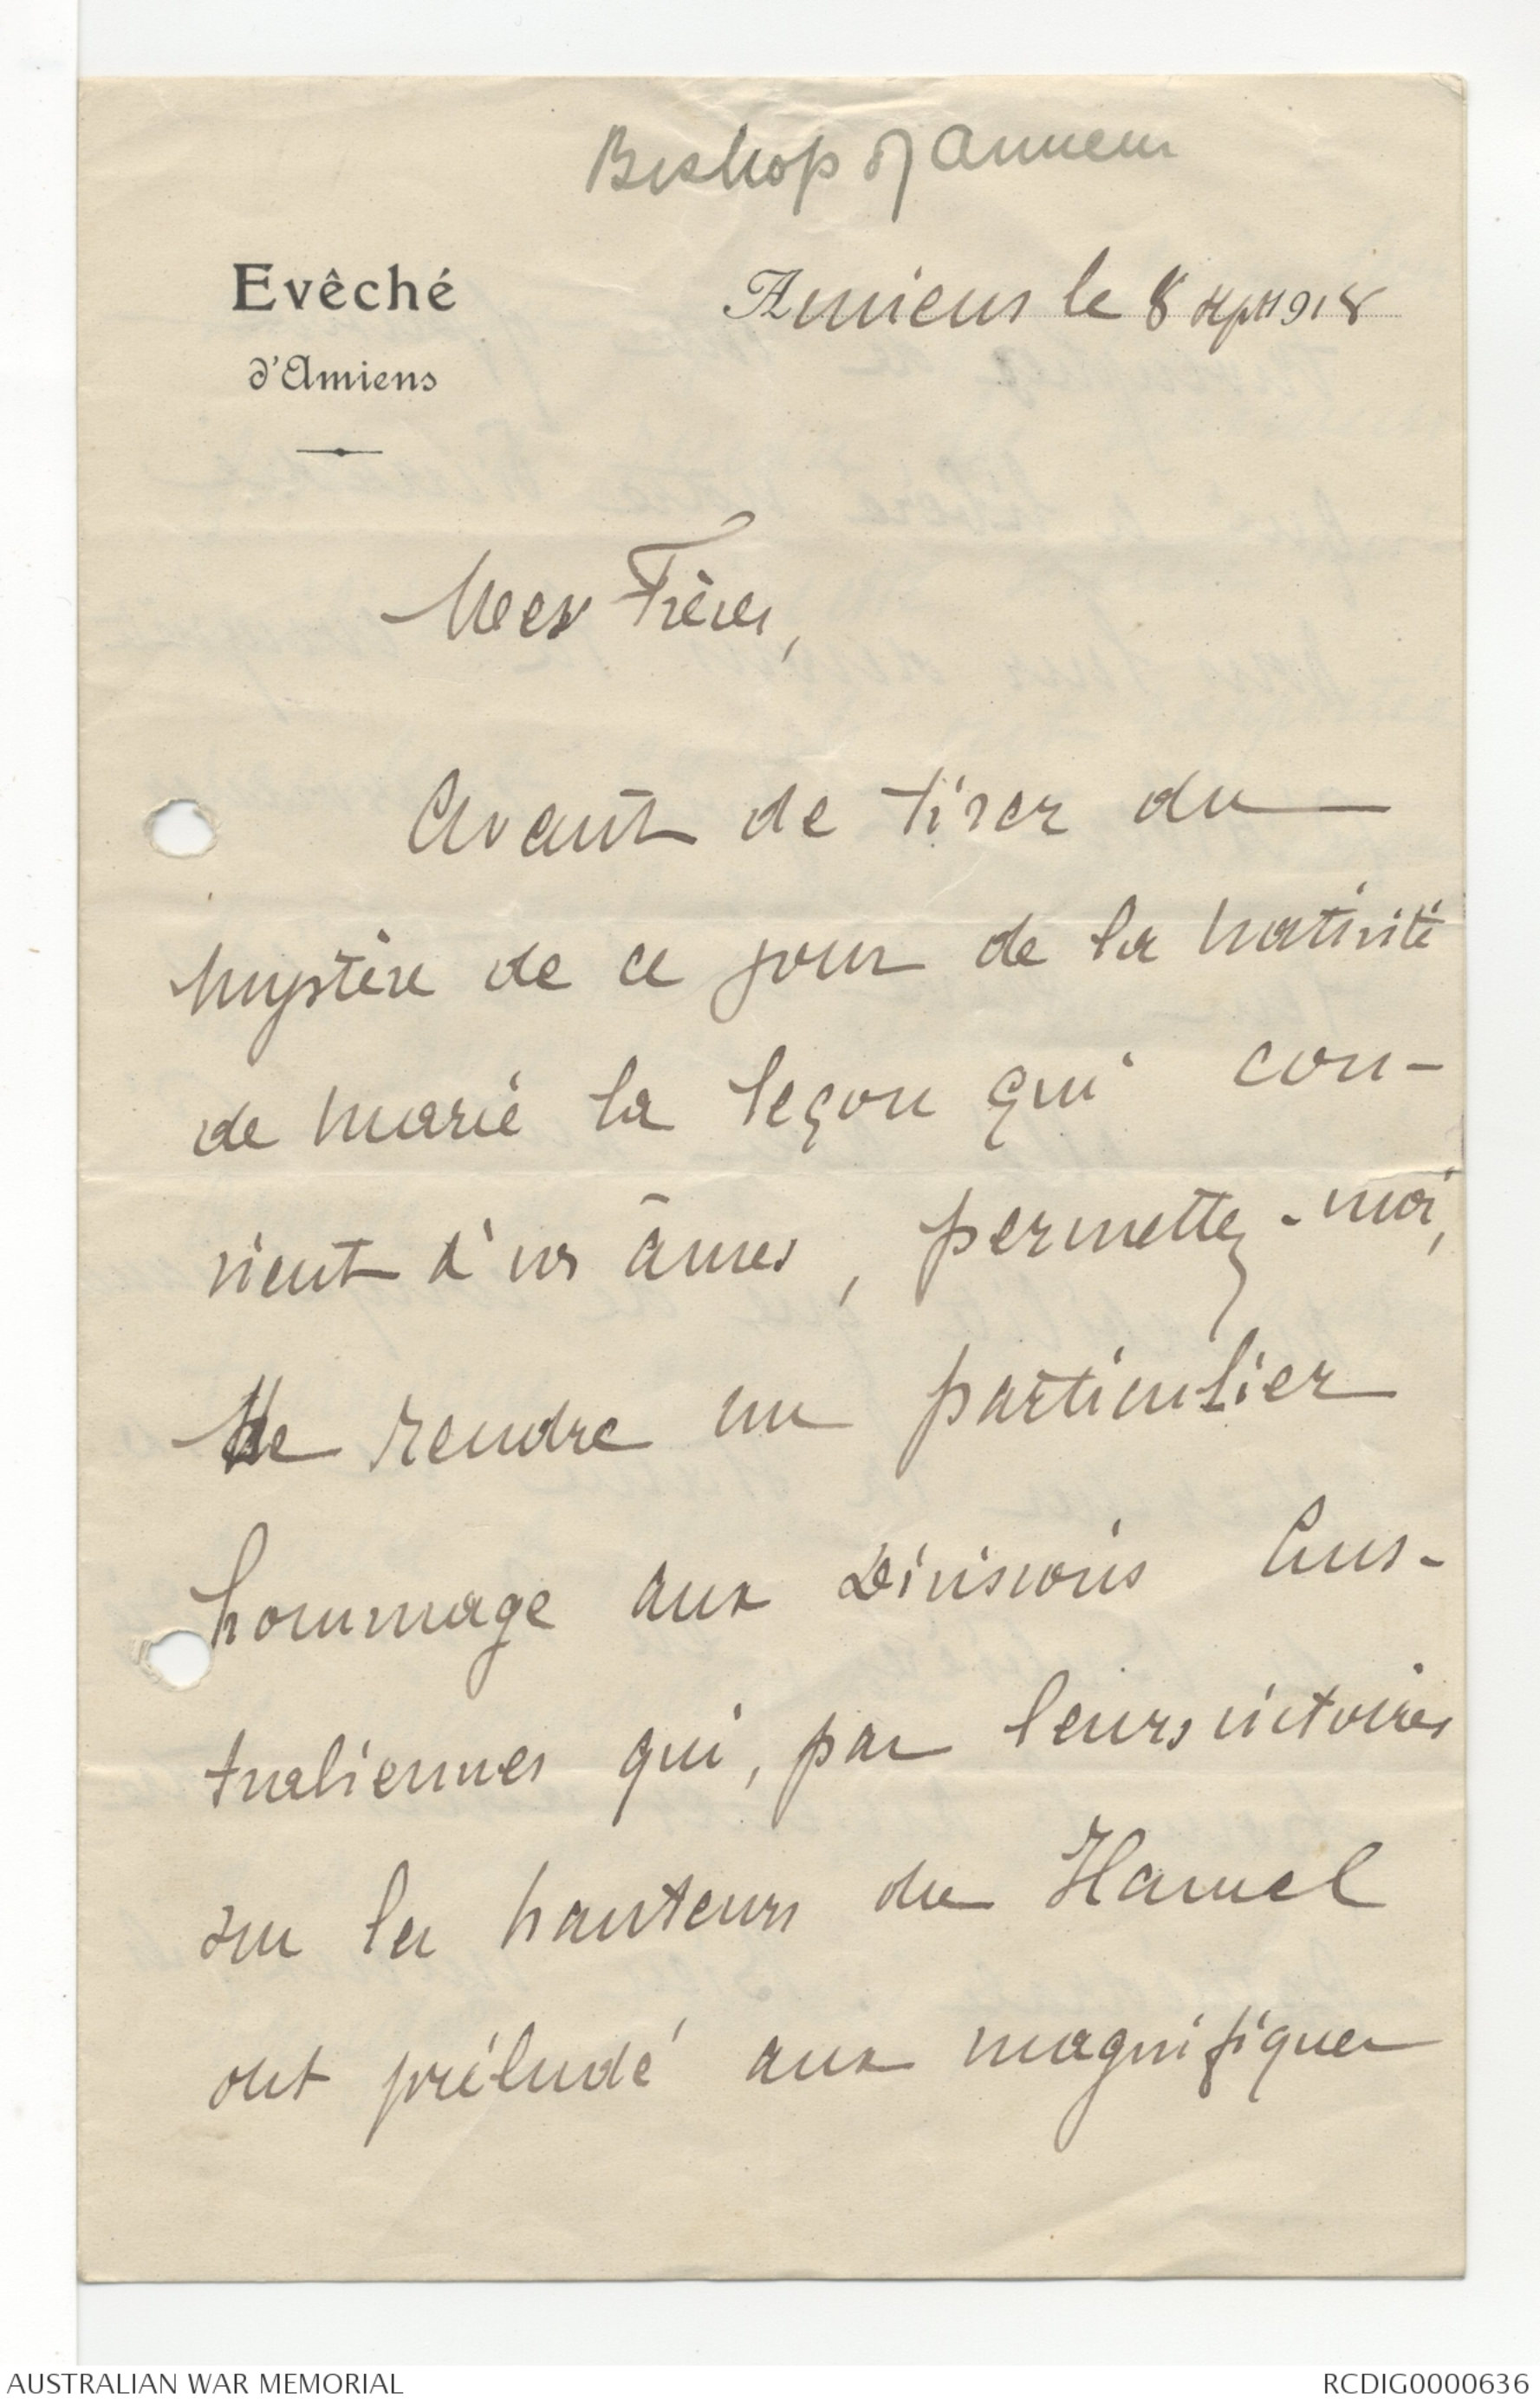 Bishop of Amiens
Evêché
d'Amiens
Amiens le 8 sept 1918
Mes Frères,
Avant de tirer du
mystère de ce jour de la nativité
de Marie la leçon qui con-
vient à vos âmes, permettez-moi,
de rendre un particulier
hommage aux Divisions Aus-
traliennes qui, par leurs victoires
sur les hauteurs du Hamel
ont préludé aux magnifiques
AUSTRALIAN WAR MEMORIAL
RCDIG0000636